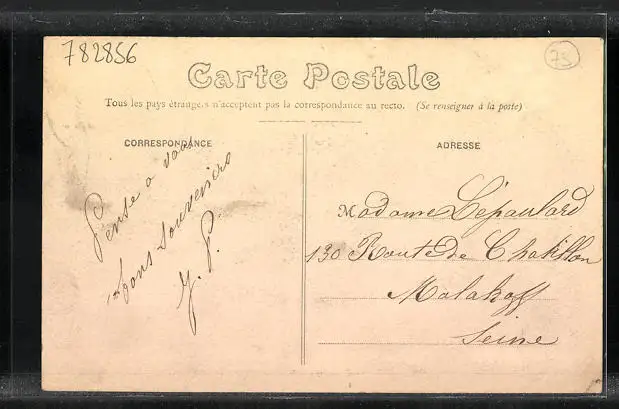 782856
75
Carte Postale
Tous les pays étrangers n'acceptent pas la correspondance au recto. (Se renseigner à la poste)
CORRESPONDANCE
Pense a vous
Bons souvenirs
Y. P.
ADRESSE
Madame Lépaulard
130 Route de Chatillon
Malakoff
Seine